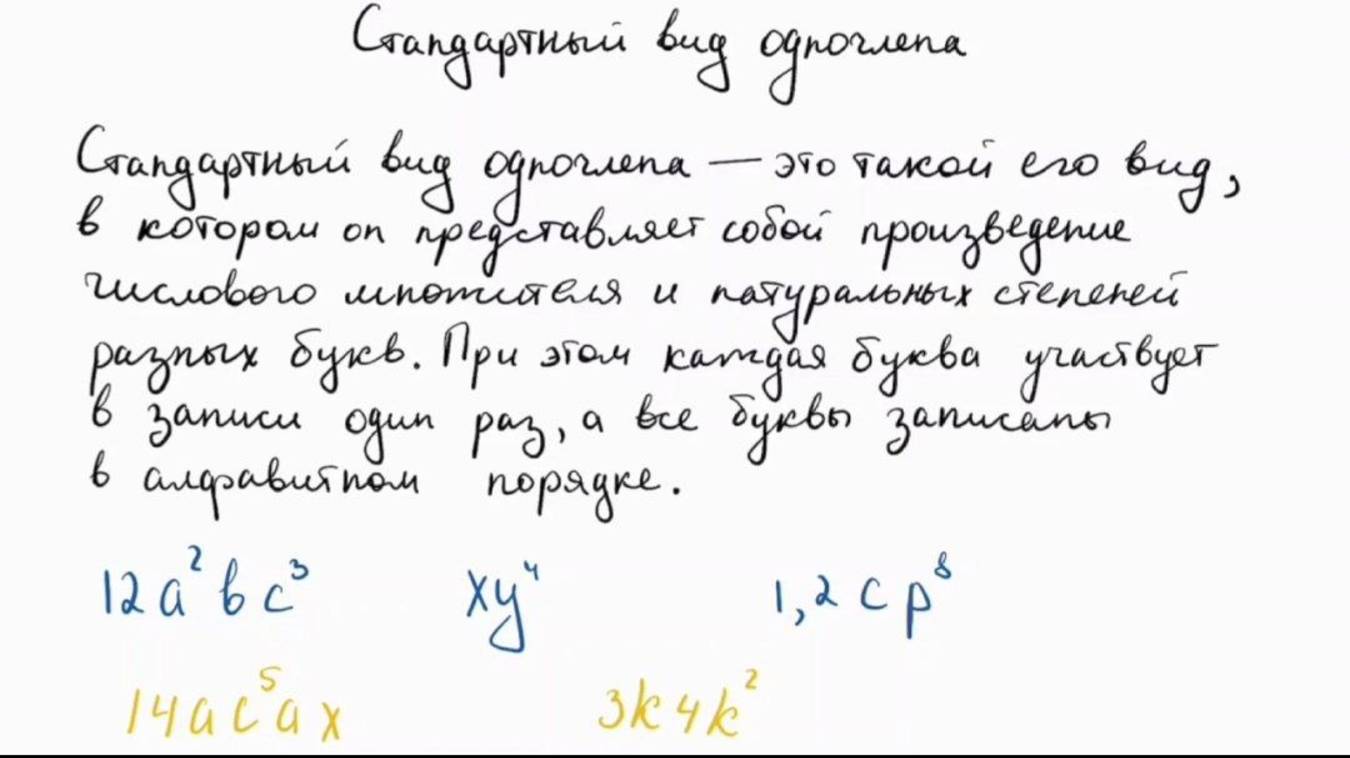 Стандартный вид одночлена
Стандартный вид одночлена — это такой его вид,
в котором он представляет собой произведение
числового множителя и натуральных степеней
разных букв. При этом каждая буква участвует
в записи один раз, а все буквы записаны
в алфавитном порядке.
12a²bc³ xy⁴ 1,2cp⁸
14ac⁵ax 3k4k²